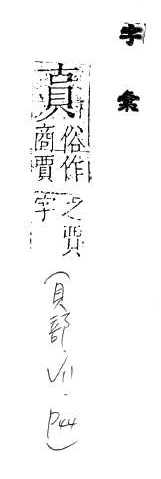 字彙
俗作
商賈
之賈
字
(貝部.V11.P44)